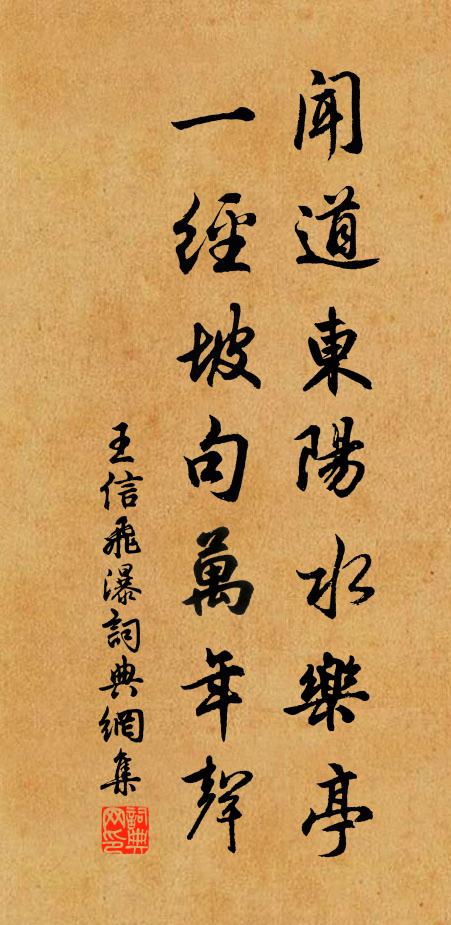 聞道東陽水樂亭
一經坡句萬年聲
王信飛瀑詞典網集
詞典網印